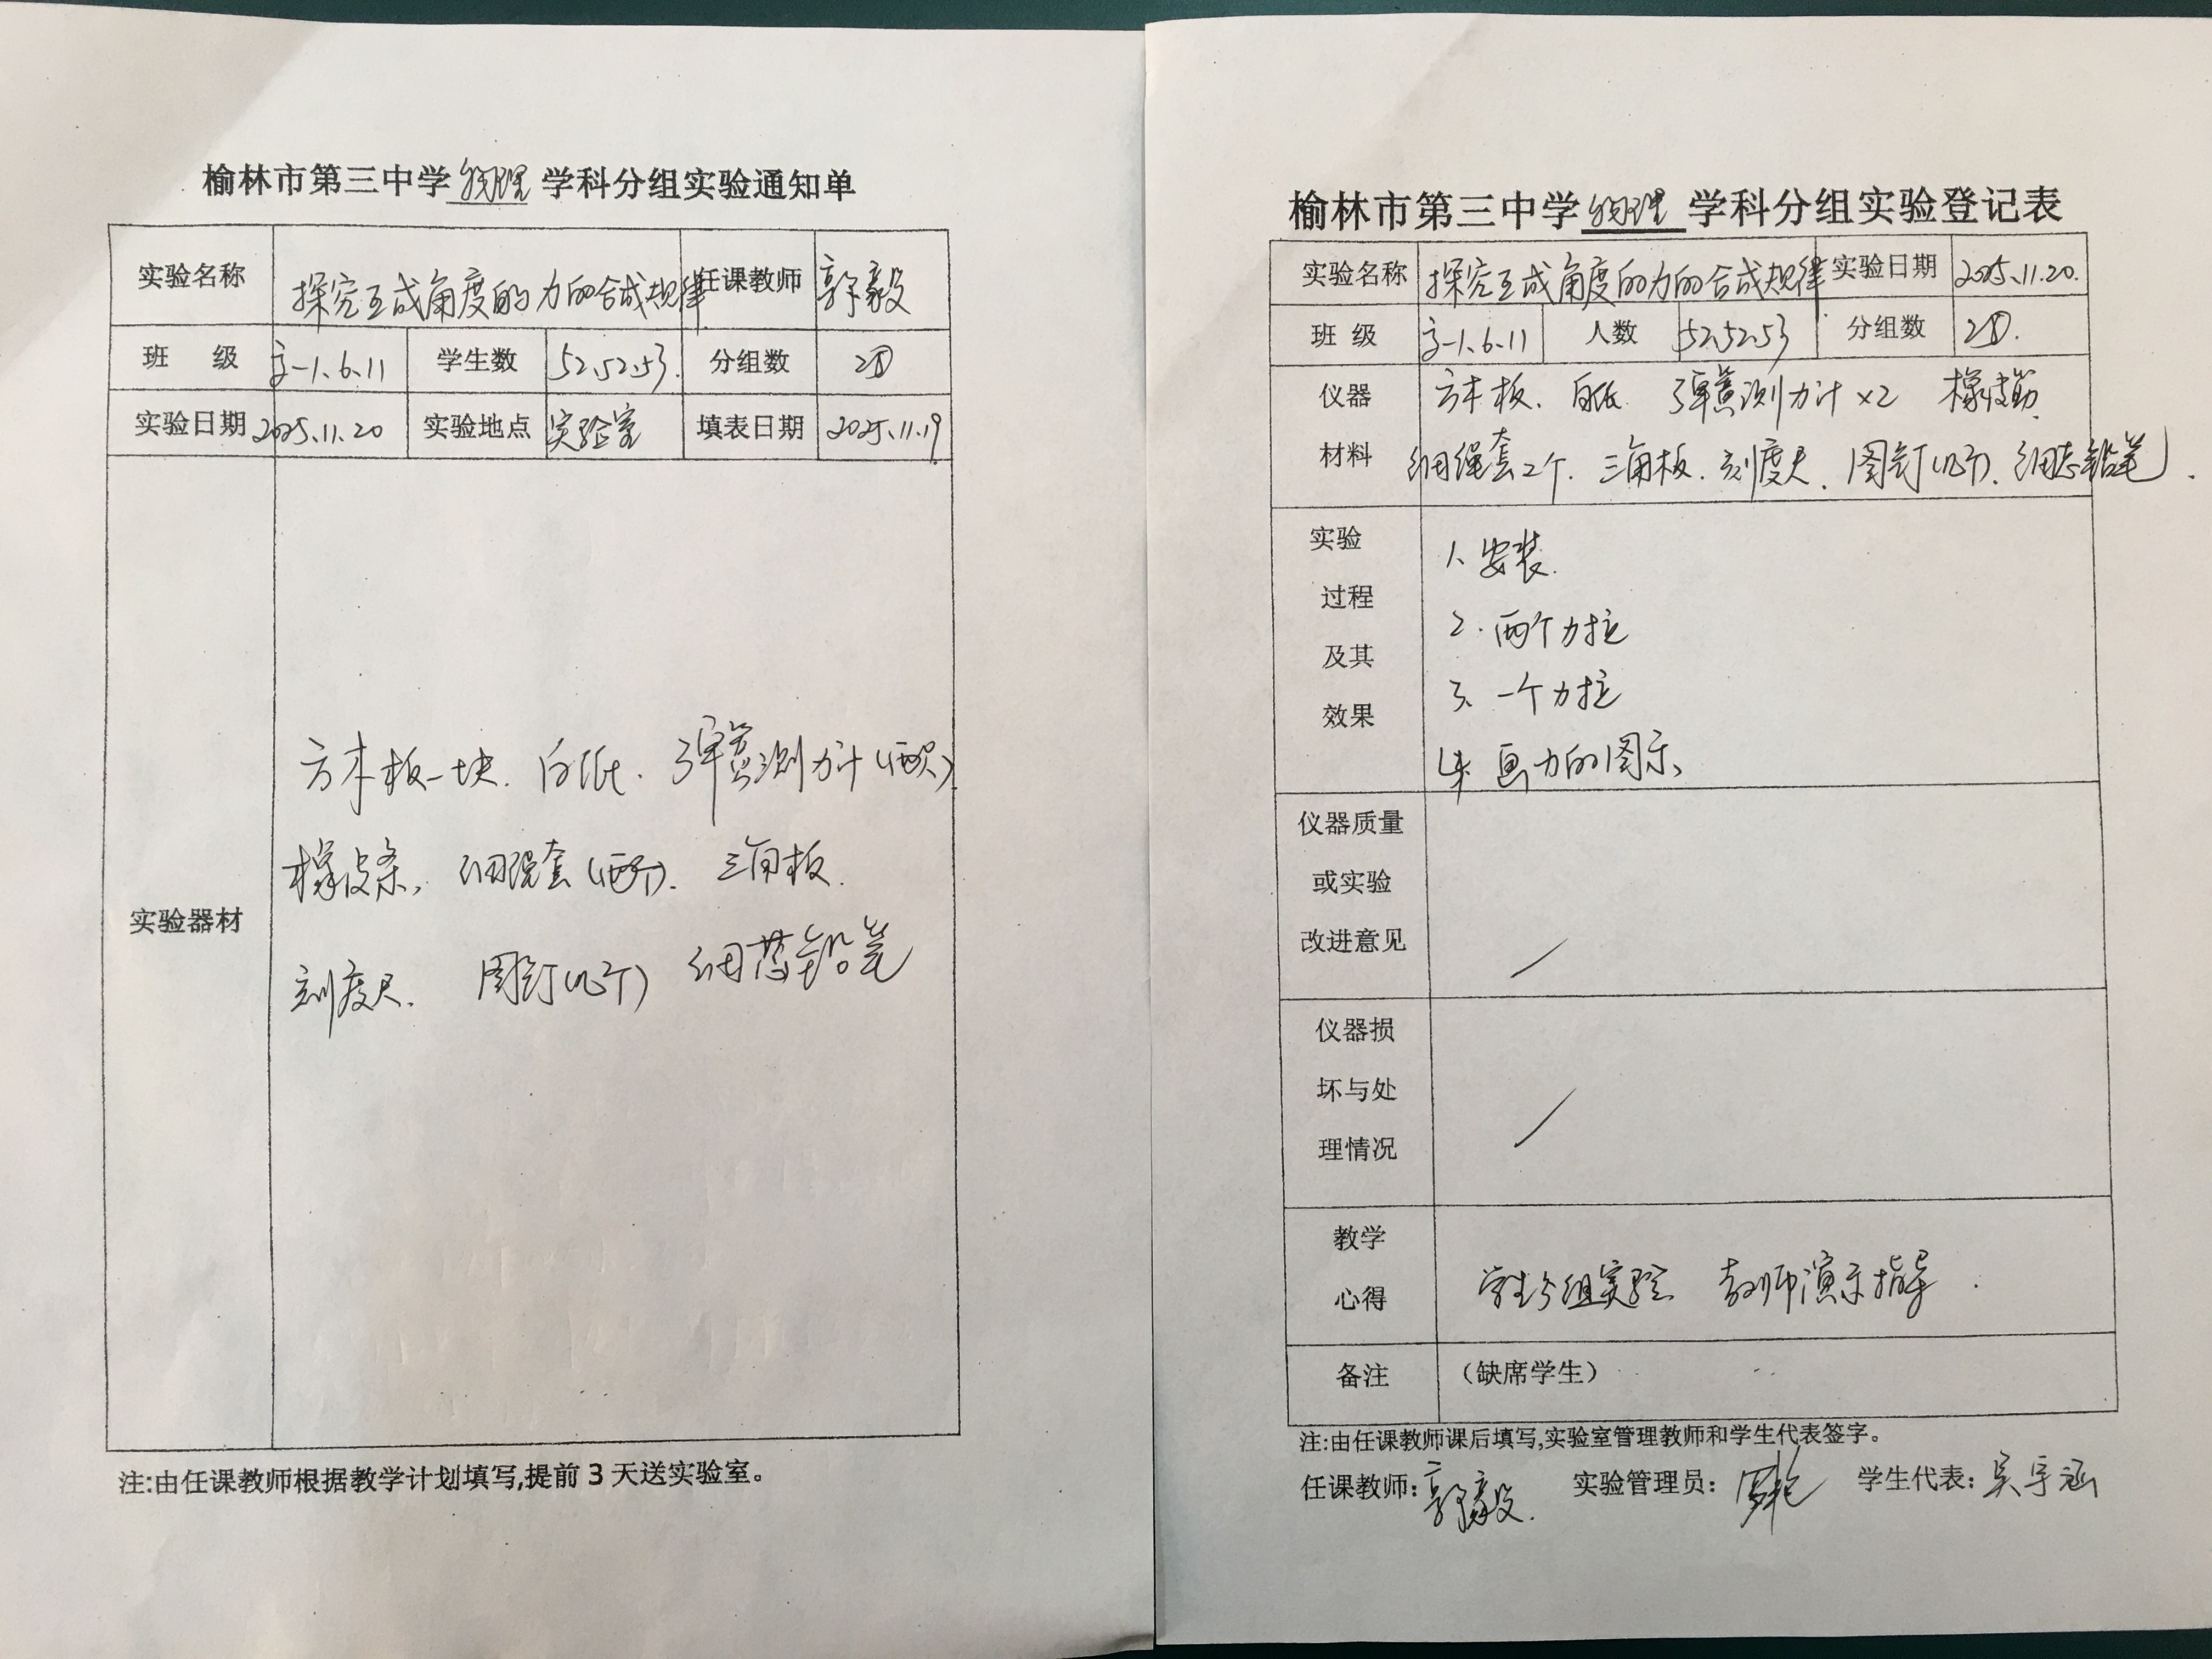 榆林市第三中学物理学科分组实验通知单
实验名称 探究互成角度的力的合成规律 任课教师 郭毅
班 级 高一1、6、11 学生数 52、52、53. 分组数
实验日期 2025.11.20 实验地点 实验室 填表日期 2025.11.19
实验器材
方木板一块. 白纸. 弹簧测力计(两只)
橡皮条, 细绳套(两个). 三角板.
刻度尺. 图钉(几个) 细芯铅笔
注:由任课教师根据教学计划填写,提前3天送实验室。
榆林市第三中学物理学科分组实验登记表
实验名称 探究互成角度的力的合成规律 实验日期 2025.11.20.
班 级 高一1、6、11 人数 52、52、53 分组数
仪器 方木板. 白纸 弹簧测力计×2 橡皮筋
材料 细绳套2个. 三角板. 刻度尺. 图钉(几个). 细芯铅笔.
实验 1、安装.
过程 2. 两个力拉
及其 3、一个力拉
效果 4、画力的图示、
仪器质量
或实验
改进意见
仪器损
坏与处
理情况
教学
心得 学生分组实验 教师演示指导.
备注 (缺席学生)
注:由任课教师课后填写,实验室管理教师和学生代表签字。
任课教师:郭毅. 实验管理员: 学生代表:吴宇涵